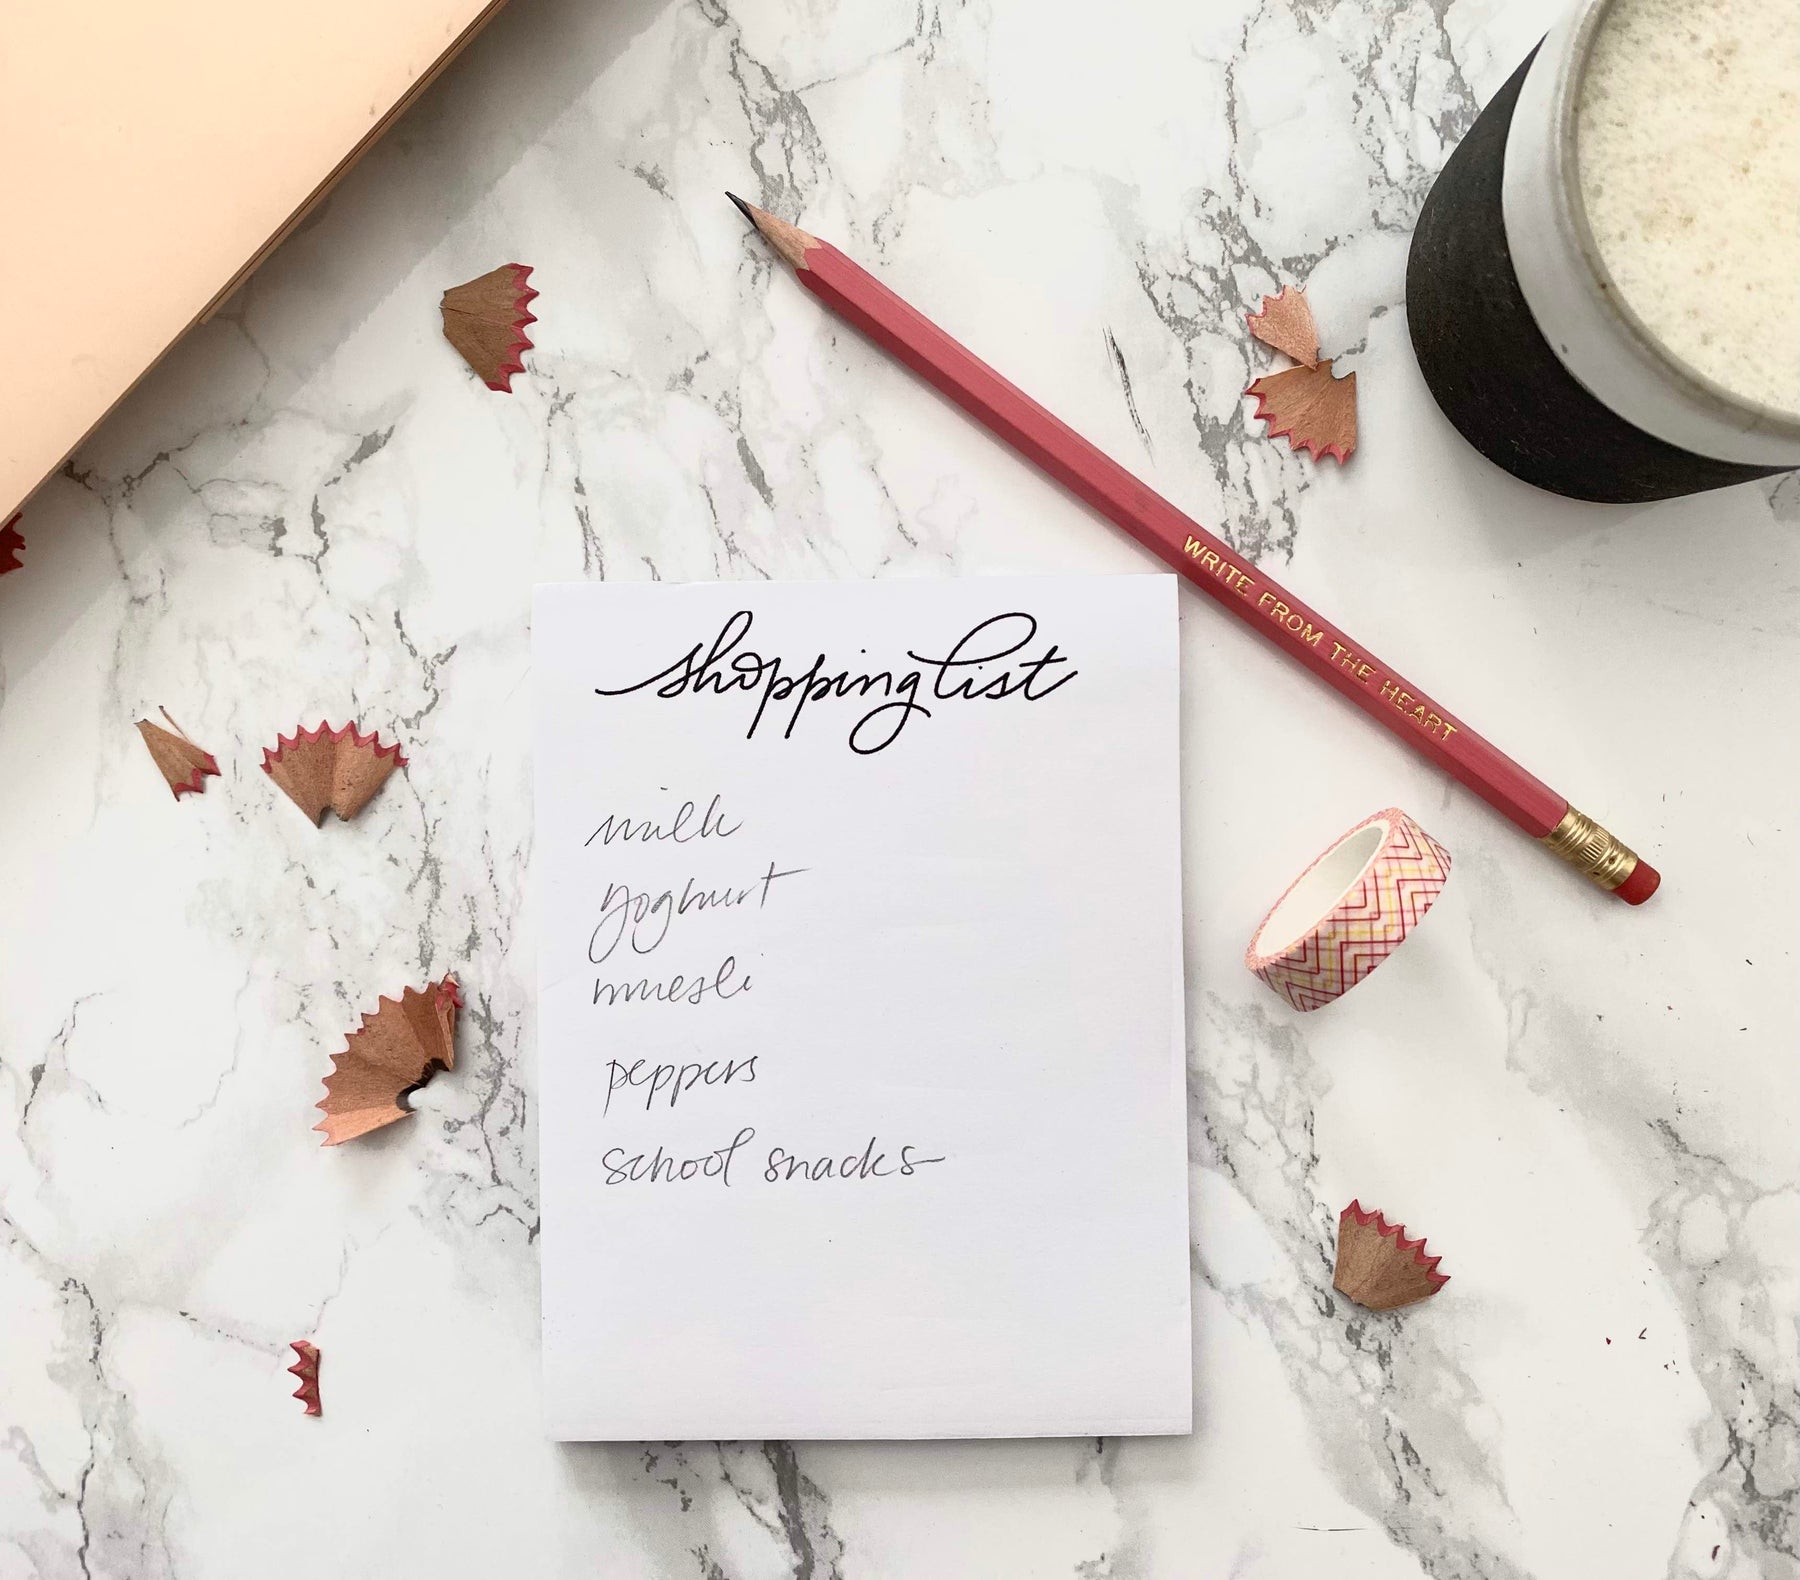 WRITE FROM THE HEART
shopping list
milk
yoghurt
muesli
peppers
school snacks